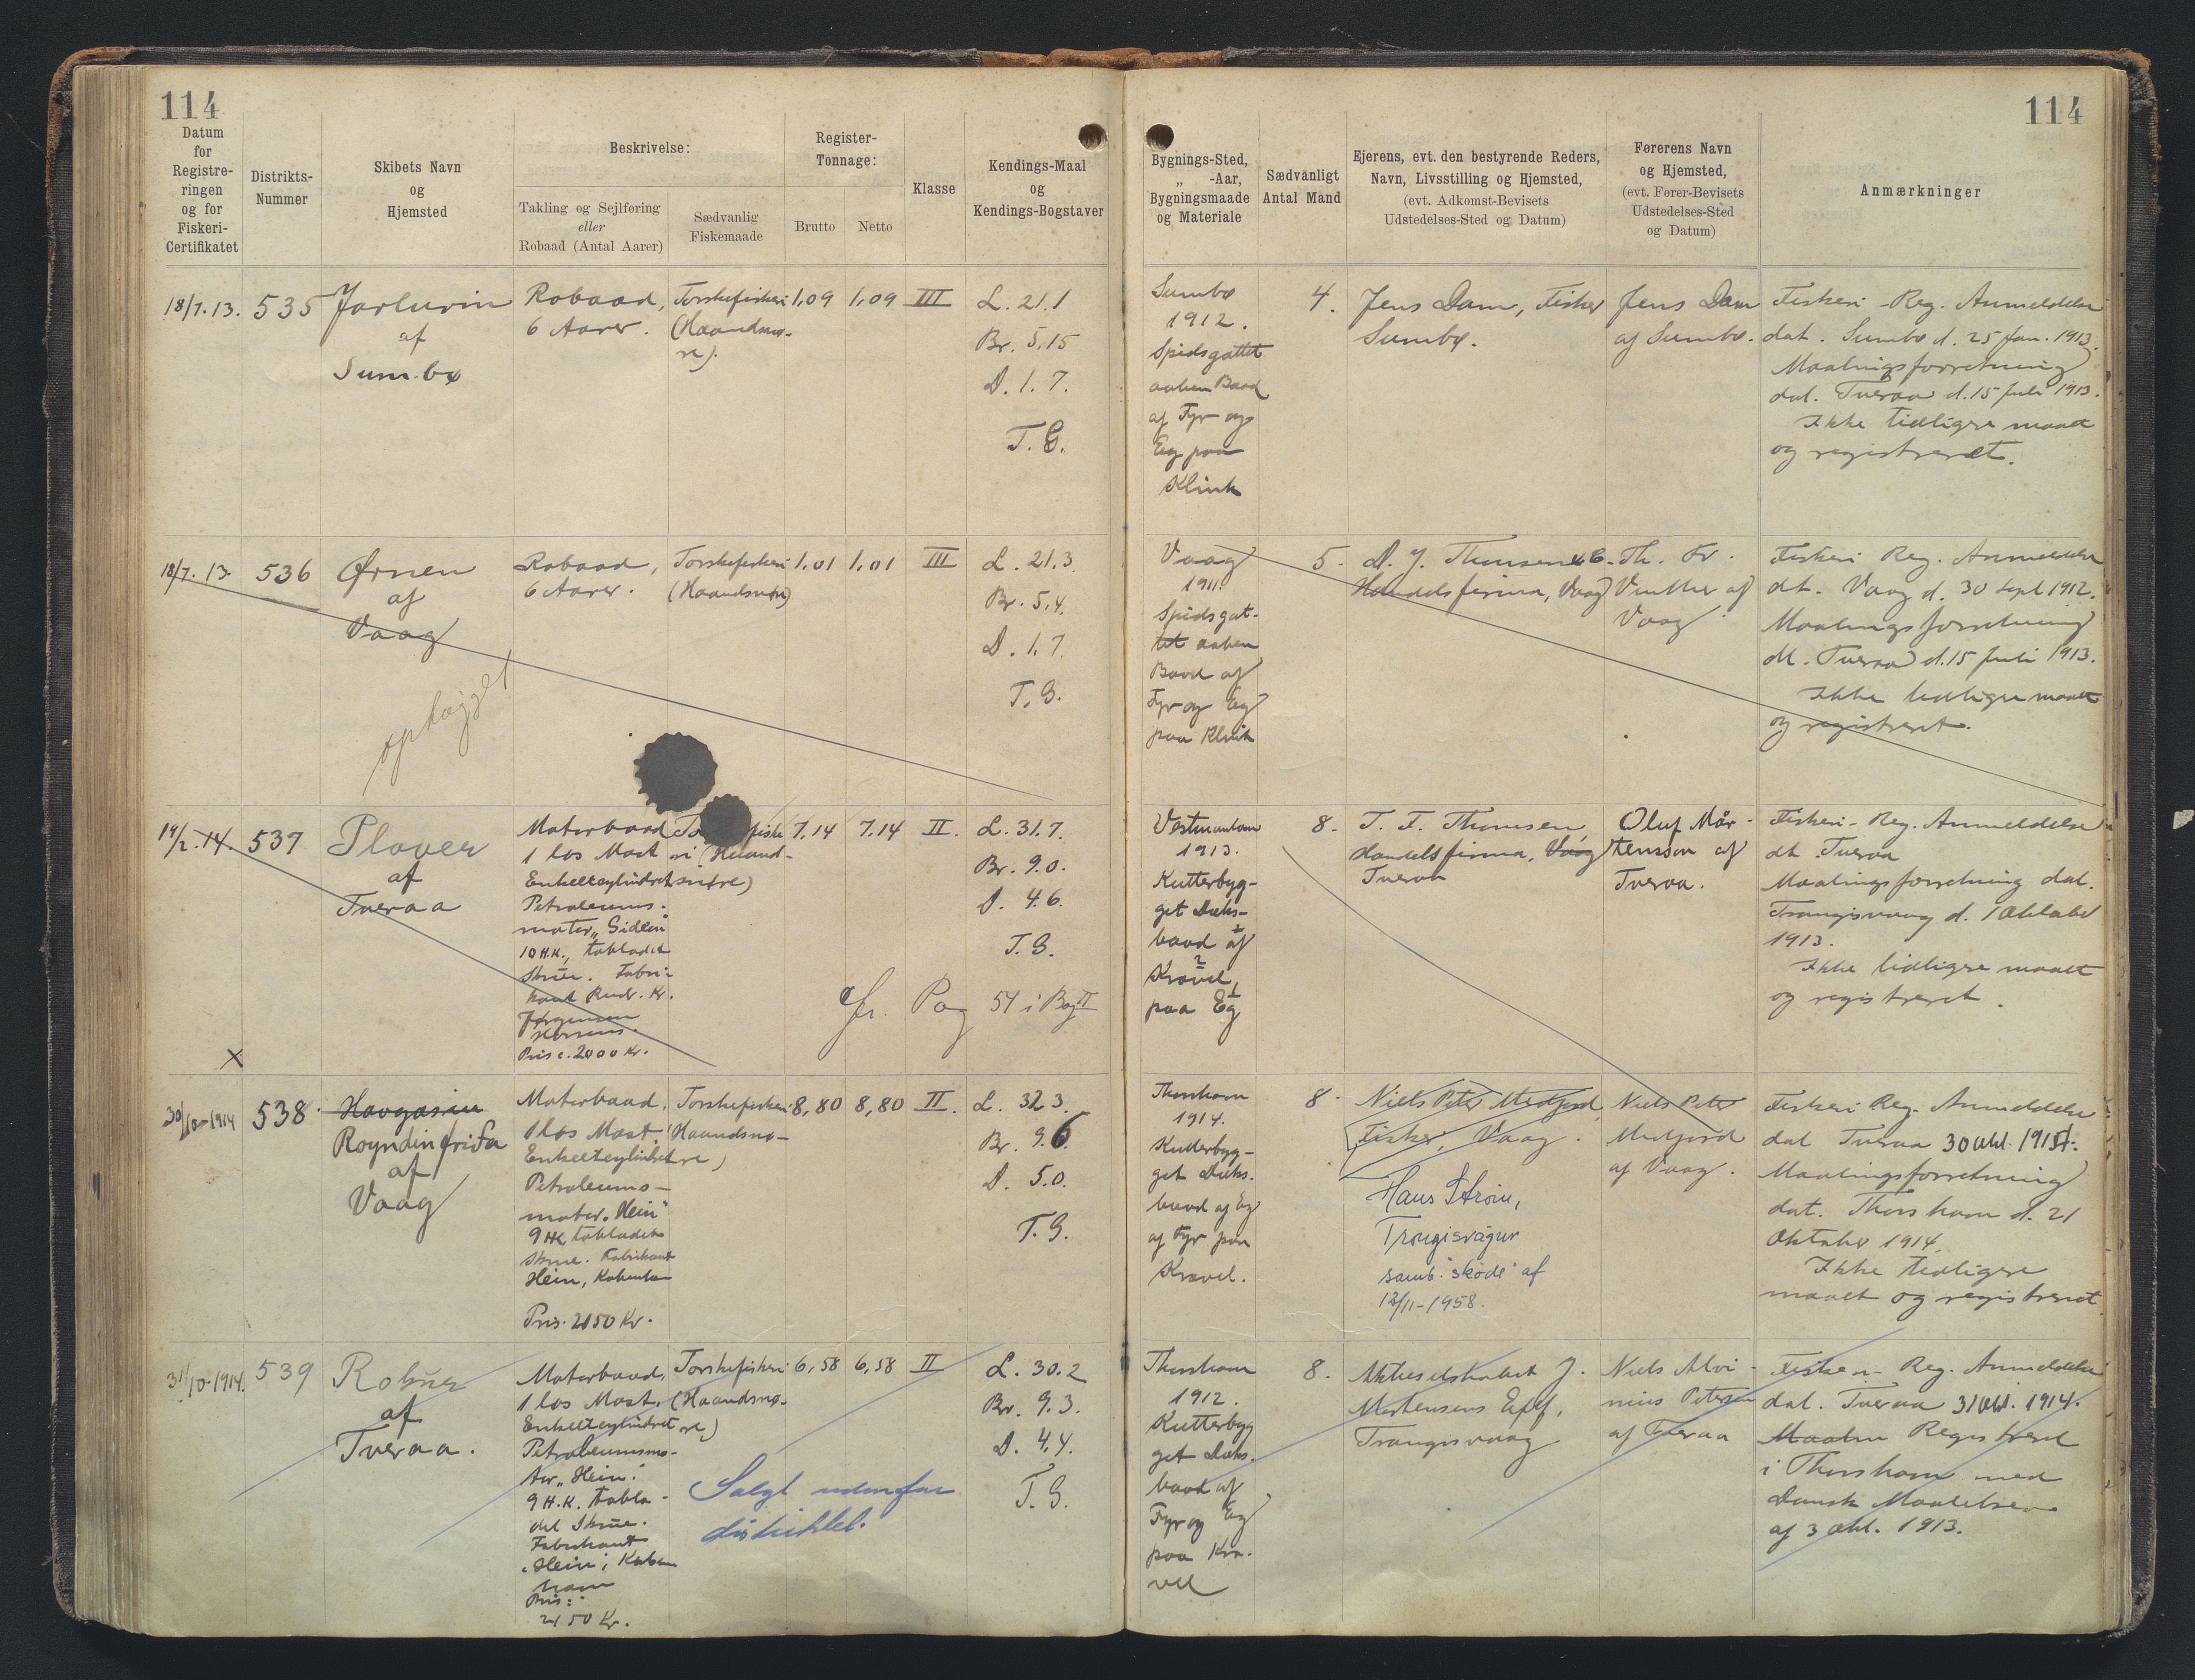 114
114
Datum
for
Registre-
ringen
og for
Fiskeri-
Certifikatet
Distrikts-
Nummer
Skibets Navn
og
Hjemsted
Beskrivelse:
Takling og Sejlføring
eller
Robaad (Antal Aarer)
Sædvanlig
Fiskemaade
Register-
Tonnage:
Brutto
Netto
Klasse
Kendings-Maal
og
Kendings-Bogstaver
Bygnings-Sted,
„ -Aar,
Bygningsmaade
og Materiale
Sædvanligt
Antal Mand
Ejerens, evt. den bestyrende Reders,
Navn, Livsstilling og Hjemsted,
(evt. Adkomst-Bevisets
Udstedelses-Sted og Datum)
Førerens Navn
og Hjemsted,
(evt. Fører-Bevisets
Udstedelses-Sted
og Datum)
Anmærkninger
18/7.13.
535
Jarlurin
af
Sumbø
Robaad,
6 Aarer.
Torskefiskeri
(Haandsnø-
re).
1,09
1,09
III
L. 21.1
Br. 5,15
D. 1.7.
T.G.
Sumbø
1912.
Spidsgattet
aaben Baad
af Fyr og
Eg paa
Klink
4.
Jens Dam, Fisker
Sumbø.
Jens Dam
af Sumbø.
Fiskeri-Reg. Anmeldelse
dat. Sumbø d. 25 Jan. 1913.
Maalingsforretning
dat. Tveraa d. 15 Juli 1913.
Ikke tidligere maalt
og registreret.
18/7.13.
536
Ørnen
af
Vaag
ophøgget
Robaad,
6 Aarer.
Torskefiskeri
(Haandsnøre)
1,01
1,01
III
L. 21.3.
Br. 5,4.
D. 1.7.
T.G.
Vaag
1911.
Spidsgat-
tet aaben
Baad af
Fyr og Eg
paa Klink
5.
Handelsfirma, Vaag
Th. Fr.
Vinther af
Vaag
Fiskeri Reg. Anmeldelse
dt. Vaag d. 30 Sept 1912.
Maalingsforretning
dt. Tveraa d. 15 Juli 1913.
Ikke tidligere maalt
og registreret.
14/2.14.
537
Plover
af
Tveraa
Motorbaad
1 løs Mast
Enkeltcylindret
Petroleums-
motor „Gideon"
10 H.K., tobladet
Skrue. Fabri-
kant Rud. Kr.
Jørgensen
Horsens.
Pris c. 2000 Kr.
ri (Haand-
snøre)
7,14
7,14
II.
L. 31.7.
Br. 9.0.
D. 4.6.
T.G.
cfr. Pag 54 i Bog II
Vestmanhavn
1913.
Kutterbyg-
get Dæks-
baad af
Kravel,
paa Eg
8.
T. F. Thomsen,
Handelsfirma, Vaag
Tveraa
Oluf Mår-
tensson af
Tveraa.
Fiskeri-Reg. Anmeldelse
dt. Tveraa
Maalingsforretning dat.
Trangisvaag d. 1 Oktober
1913.
Ikke tidligere maalt
og registreret.
x
30/10-1914
538
Havgasin
Royndin frida
af
Vaag
Motorbaad,
1 løs Mast.
Enkeltcylindret
Petroleums-
motor „Hein"
9 HK tobladet
Skrue. Fabrikant
Hein, København
Pris. 2150 Kr.
Torskefiskeri
(Haandsnø-
re)
8,80
8,80
II.
L. 32.3.
Br. 9.6
D. 5.0.
T.G.
Thorshavn
1914.
Kutterbyg-
get Dæks-
baad af Eg
og Fyr paa
Kravel.
8.
Niels Peter Midfjord,
Fisker, Vaag.
Hans Strøm,
Trongisvágur
samb. skøde af
12/11-1958.
Niels Peter
Midfjord
af Vaag.
Fiskeri Reg. Anmeldelse
dat Tveraa 30 Okt. 1914.
Maalingsforretning
dat. Thorshavn d. 21
Oktober 1914.
Ikke tidligere
maalt og registreret.
31/10-1914.
539
af
Tveraa.
Motorbaad,
1 løs Mast,
Enkeltcylindret
Petroleumsmo-
tor „Hein".
9 H.K. tobla-
det Skrue.
Fabrikant
„Hein", Køben
havn
Pris:
2150 Kr.
Torskefiskeri
(Haandsnø-
re)
6,58
6,58
II
L. 30.2
Br. 9.3.
D. 4,4.
T.G.
Solgt udenfor
distriktet.
Thorshavn
1912.
Kutterbyg
get Dæks.
baad af
Fyr og Eg
paa Kra-
vel
8.
Aktieselskabet J.
Mortensens Eftf.
Trangisvaag
Niels Alvi-
nius Petersen
af Tveraa
Fiskeri-Reg. Anmeldelse
dat. Tveraa 31 Okt. 1914.
Maalin Registreret
i Thorshavn med
Dansk Maalebrev
af 3 Okt. 1913.